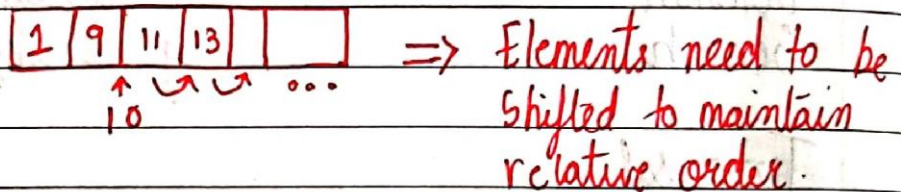 1 9 11 13 => Elements need to be
10 ... shifted to maintain
relative order.